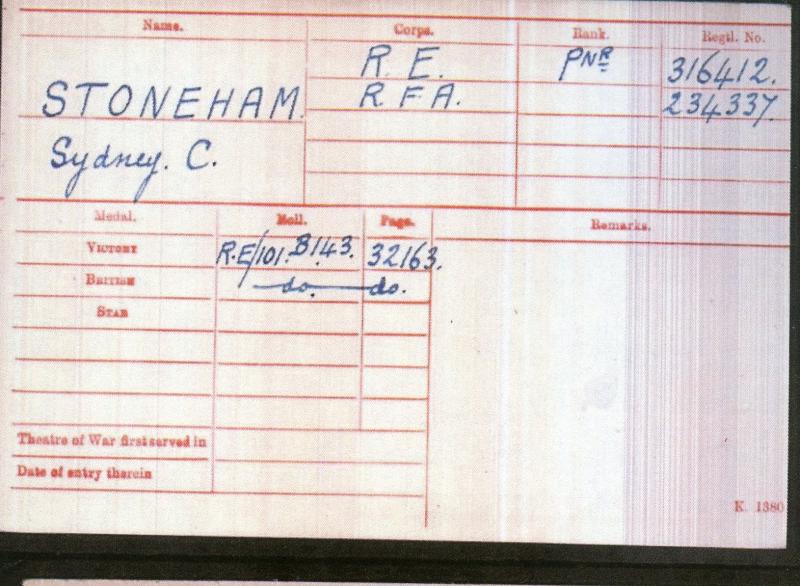 Name. Corps. Rank. Regtl. No.
STONEHAM. R. E. PNR 316412.
R F A. 234337.
Sydney. C.
Medal. Roll. Page. Remarks.
VICTORY R.E/101.B143. 32163.
BRITISH do. do.
STAR
Theatre of War first served in
Date of entry therein
K. 1380